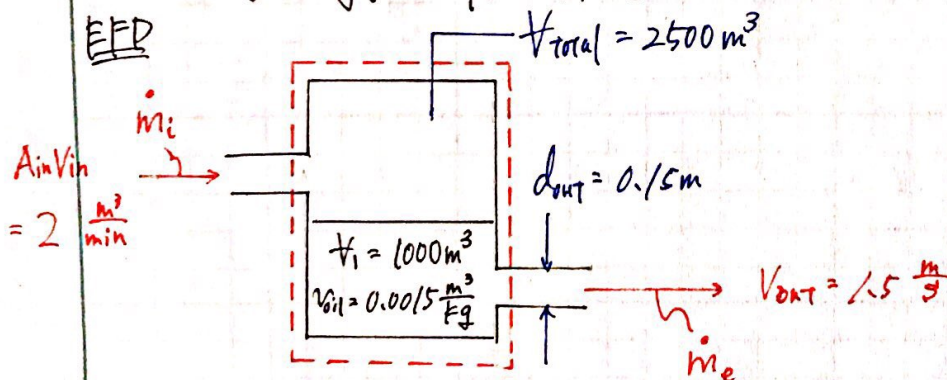 EFD
V_Total = 2500 m³
ṁ_i
A_in V_in
= 2 m³/min
d_out = 0.15 m
V_1 = 1000 m³
v_oil = 0.0015 m³/kg
V_out = 1.5 m/s
ṁ_e